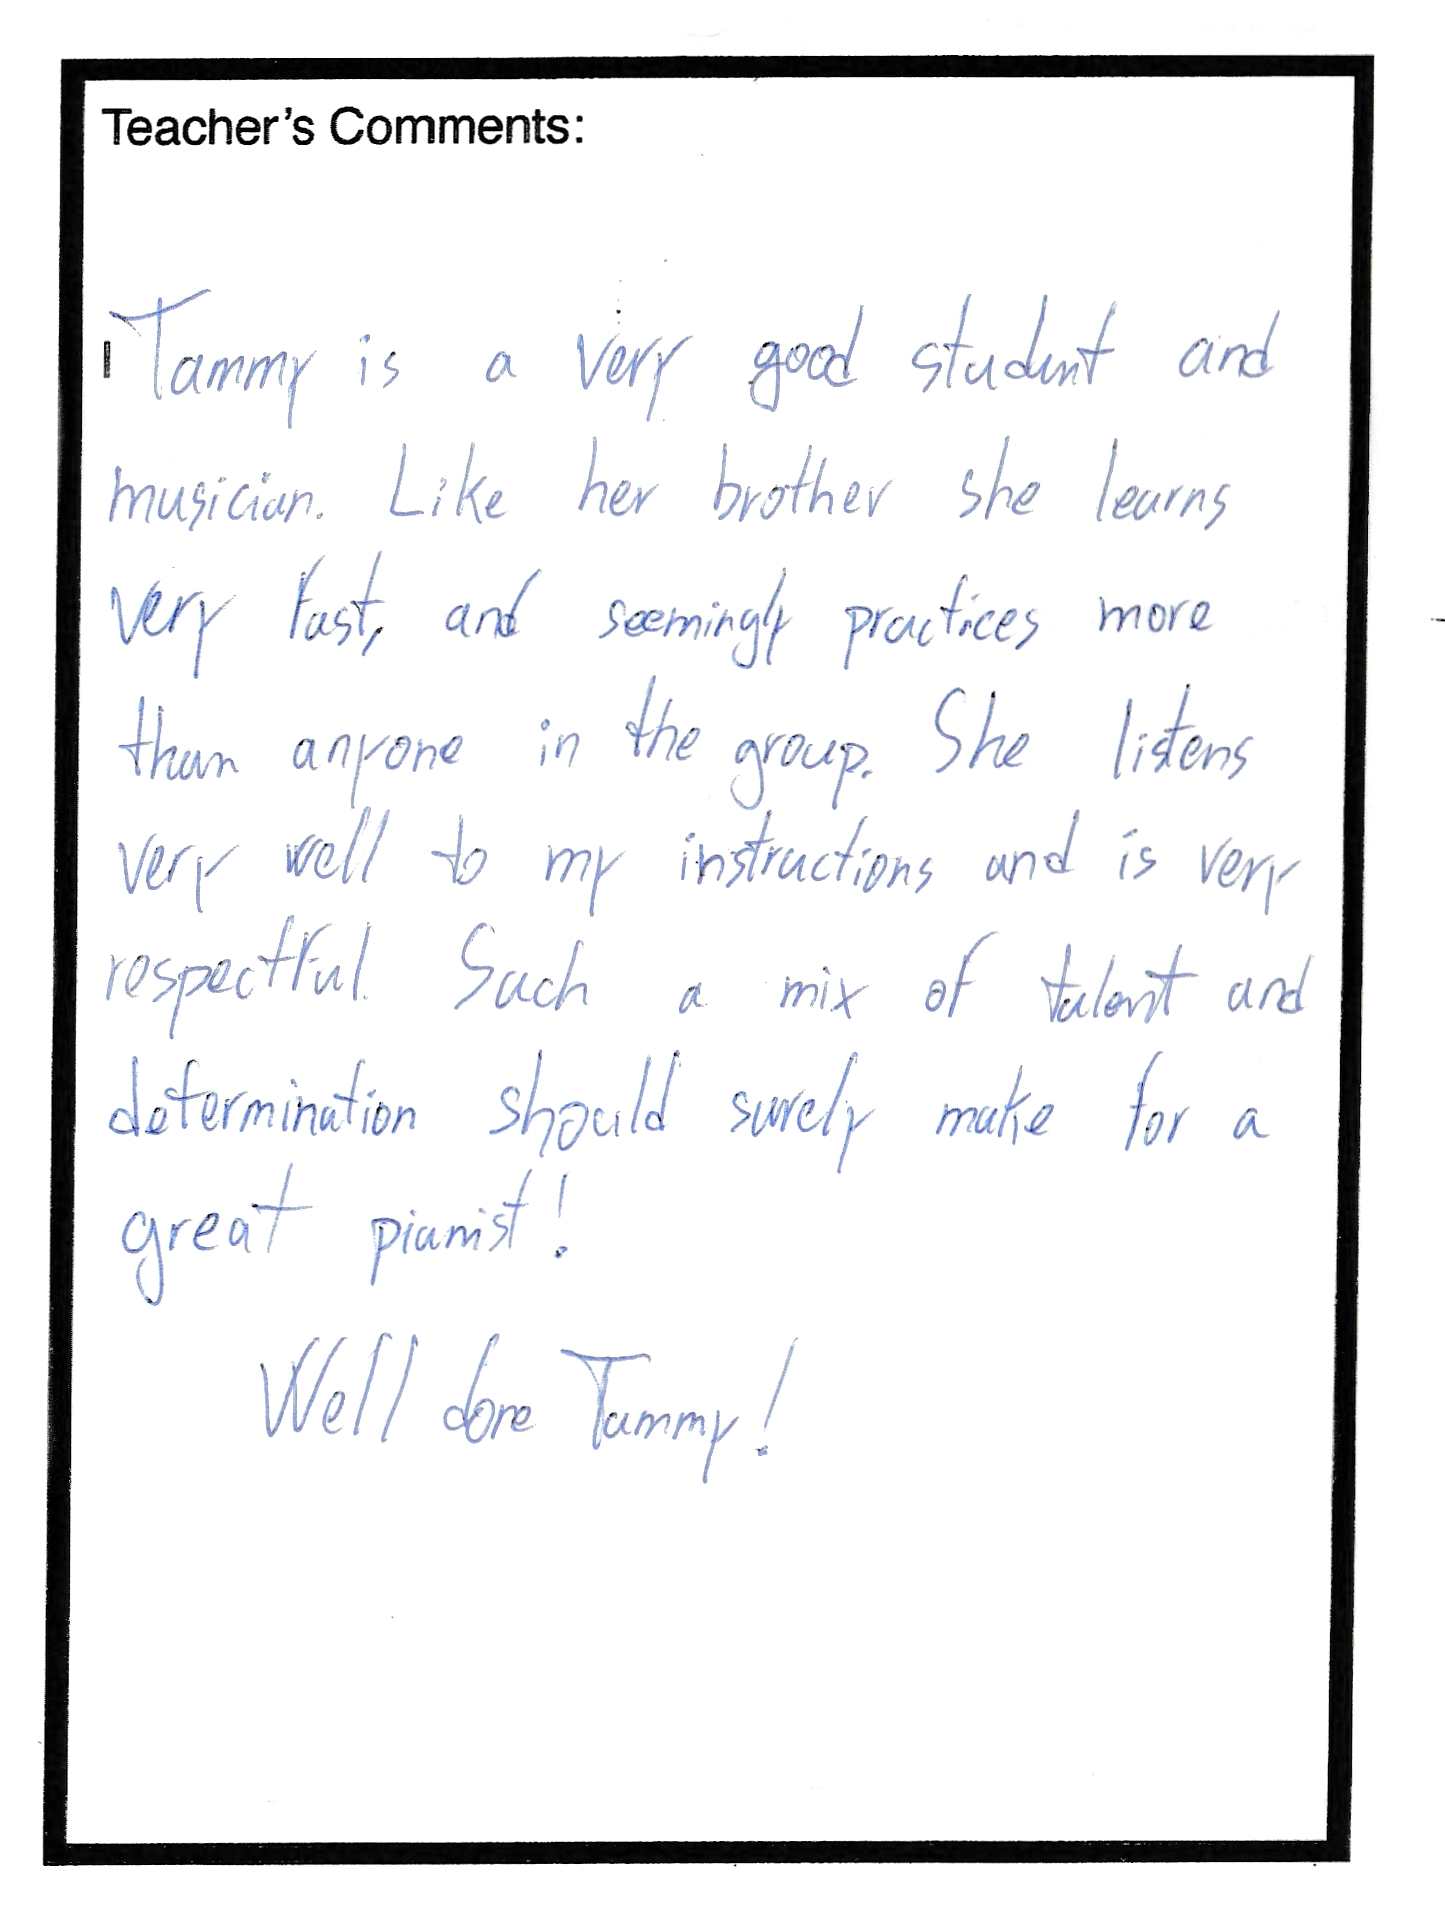 Teacher's Comments:
Tammy is a very good student and
musician. Like her brother she learns
very fast, and seemingly practices more
than anyone in the group. She listens
very well to my instructions and is very
respectful. Such a mix of talent and
determination should surely make for a
great pianist!
Well done Tammy!